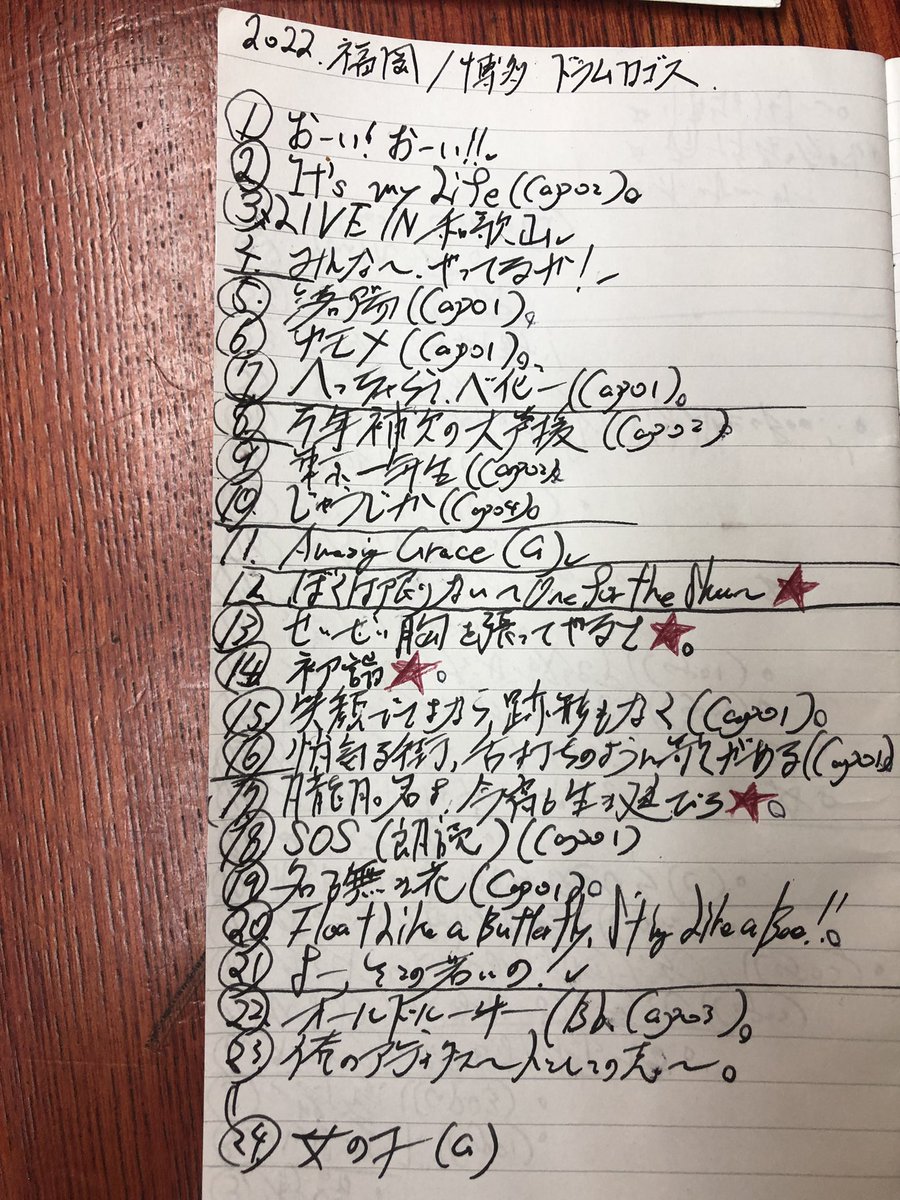 2022.福岡/博多 ドラムロゴス.
① おーい!おーい!!
② It's my Life (Capo2)。
③ LIVE IN 和歌山
4. みんな〜、やってるか!
⑤ 落陽 (Capo1)。
⑥ カモメ (Capo1)。
⑦ へっちゃらさ、ベイビー (Capo1)。
⑧ 万年補欠の大声援 (Capo2)。
⑨ 一年生 (Capo2)。
⑩ じゃうじか (Capo4)。
11. Amazing Grace (G)
12. ぼくは眠りない〜One for the ★
⑬ ぜいぜい胸を張ってやるさ★。
⑭ 初詣★。
⑮ 笑顔でさよなら、跡形もなく (Capo1)。
⑯ る街、のように歌いはじめる (Capo1)。
⑰ 朧月。君よ、今宵も生き延びろ★。
⑱ SOS (朗読) (Capo1)
⑲ 名も無き花 (Capo1)。
⑳ Float Like a Butterfly, Sting Like a Bee!!。
㉑ よー、そこの若いの!
㉒ オールドルーキー (Bb、Capo3)。
㉓ 俺のアディダス〜人としての志〜。
㉔ 女の子 (G)